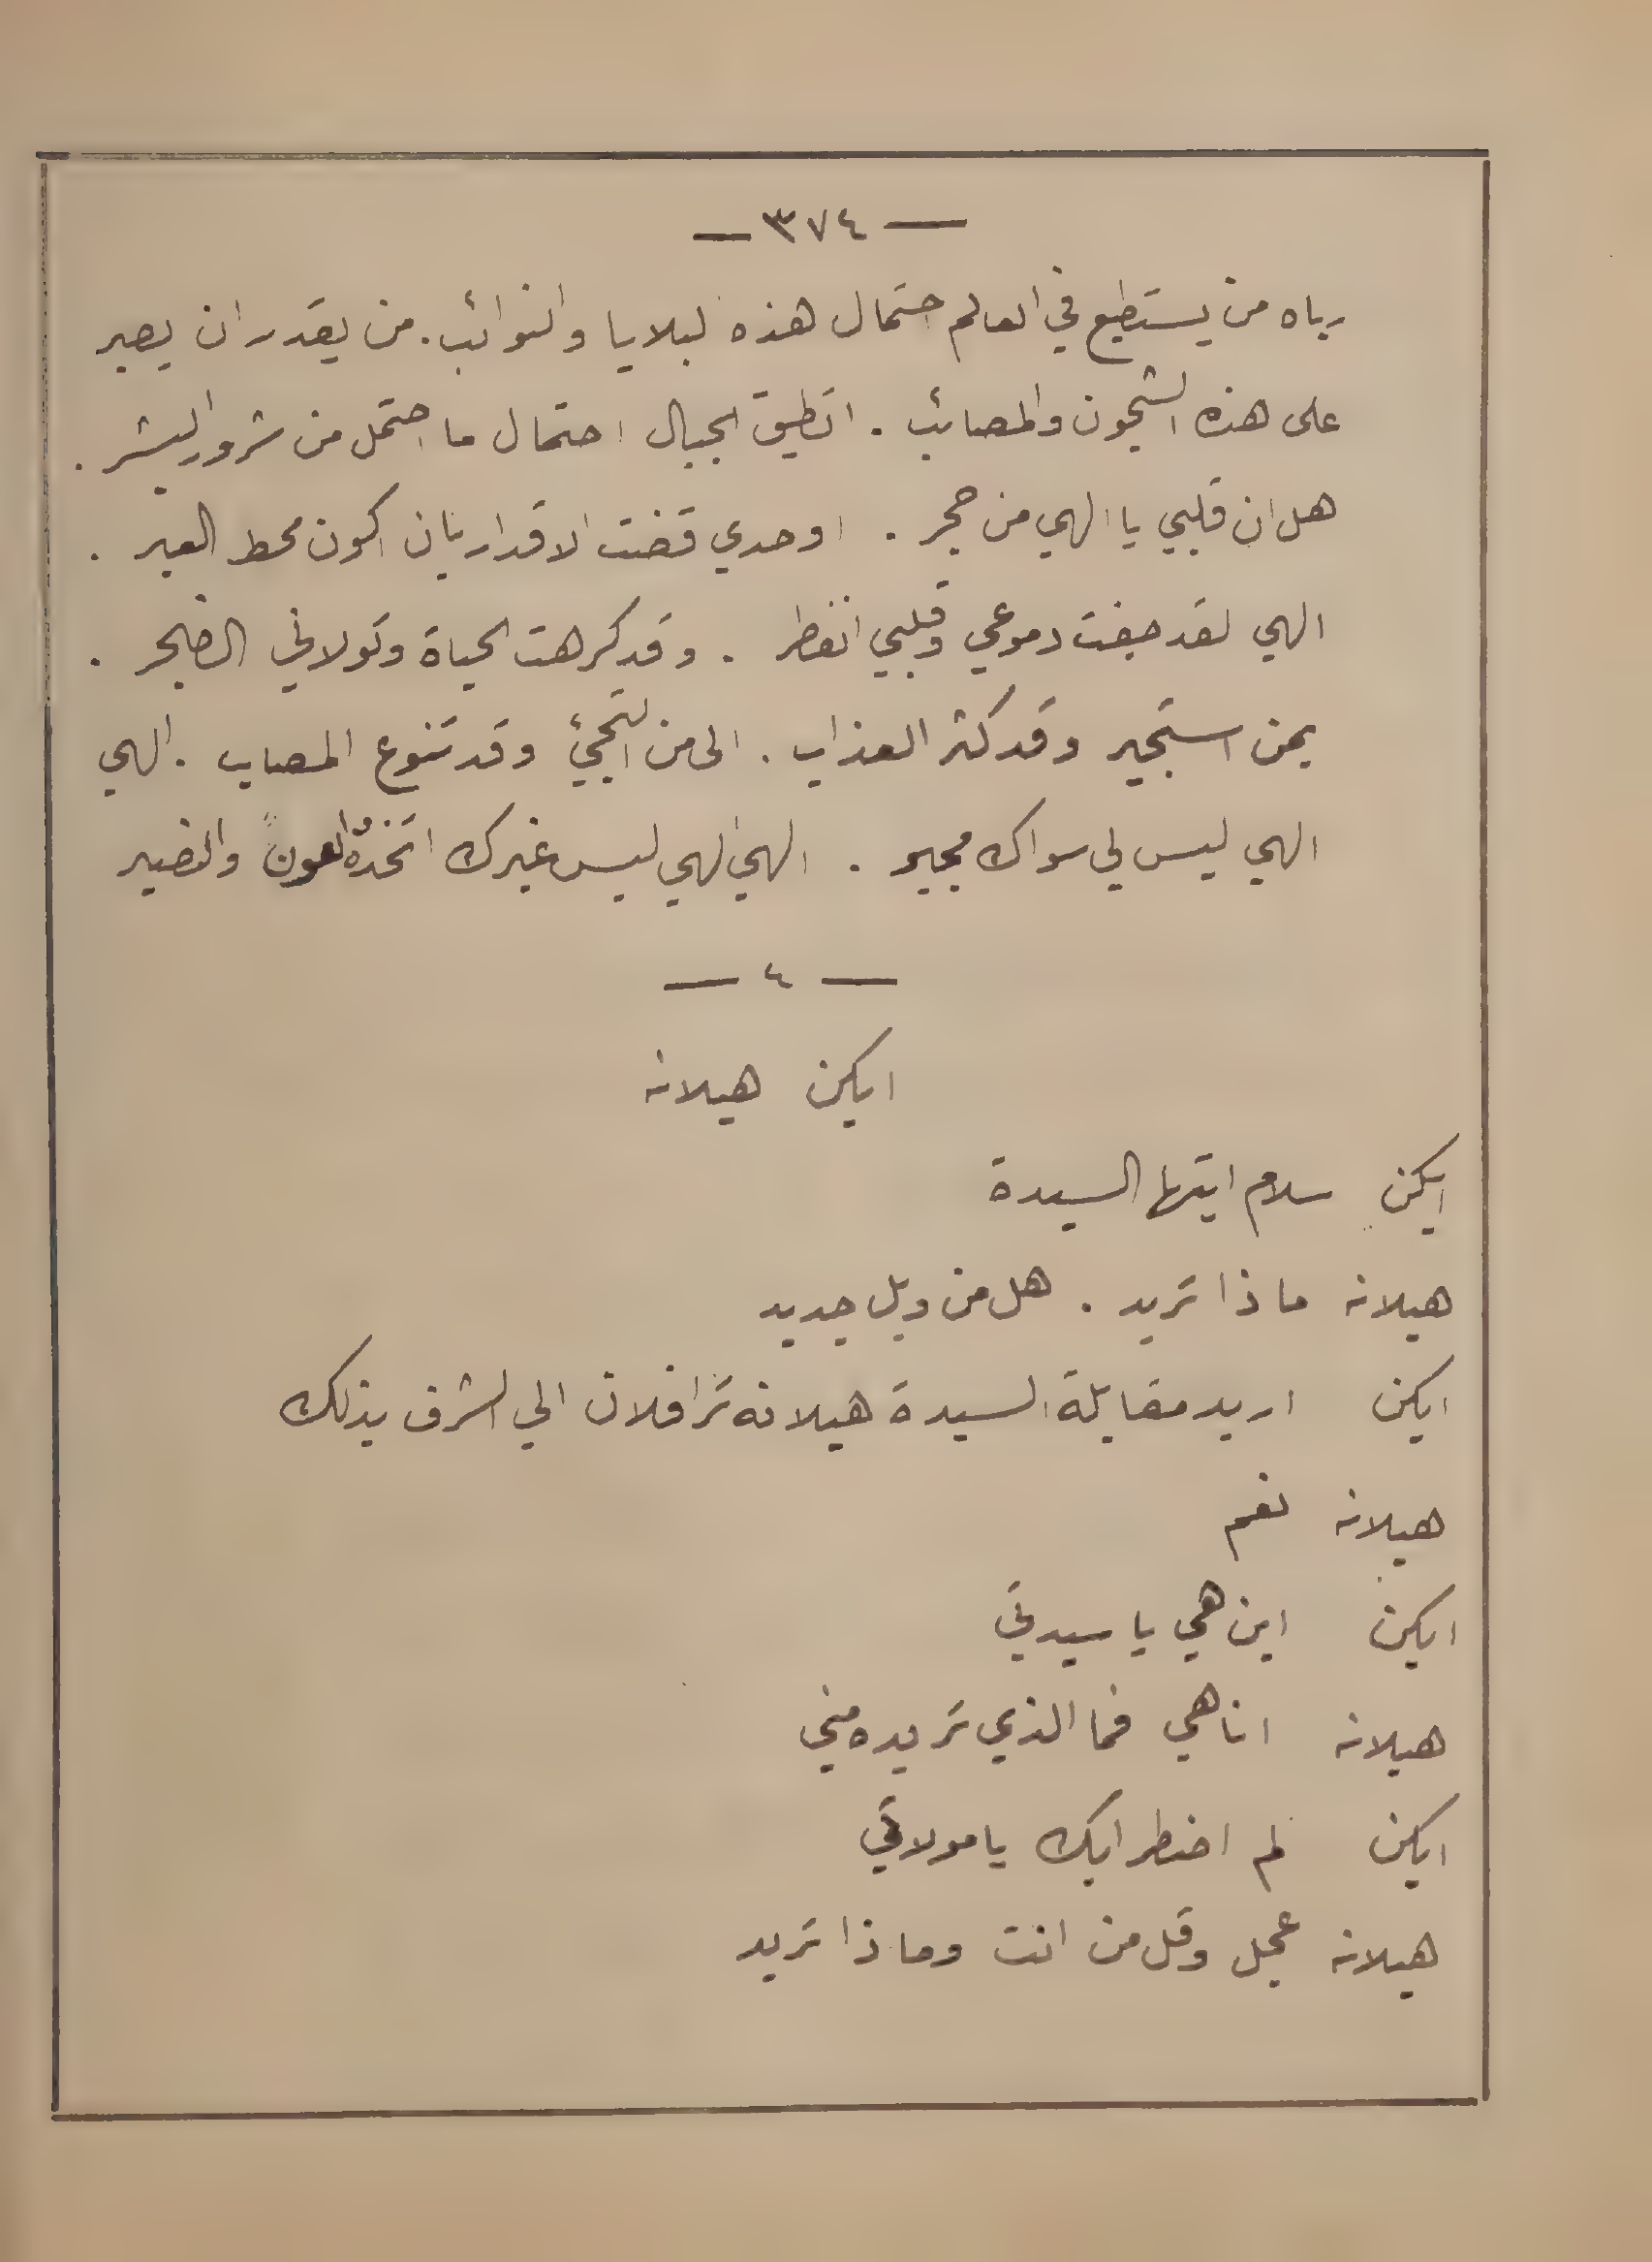 — ٣٧٤ —
رباه من يستطيع في العالم احتمال هذه البلايا والنوائب. من يقدر ان يصبر
على هذه الشجون والمصائب . اتطيق الجبال احتمال ما احتمل من شرور البشر .
هل ان قلبي يا الهي من حجر . اوحدي قضت الاقدار بان اكون محط العبر .
الهي لقد جفت دموعي وقلبي انفطر . وقد كرهت الحياة وتولاني الضجر .
بمن استجير وقد كثر العذاب . الى من التجئ وقد تنوع المصاب . الهي
الهي ليس لي سواك مجير . الهي الهي ليس غيرك اتخذه العون والنصير
— ٤ —
ايكن هيلانه
ايكن سلام ايتها السيدة
هيلانه ماذا تريد . هل من ويل جديد
ايكن اريد مقابلة السيدة هيلانه ترافلان الي الشرف بذلك
هيلانه نعم
ايكن اين هي يا سيدتي
هيلانه انا هي فما الذي تريده مني
ايكن لم اضطرابك يا مولاتي
هيلانه عجل وقل من انت وماذا تريد